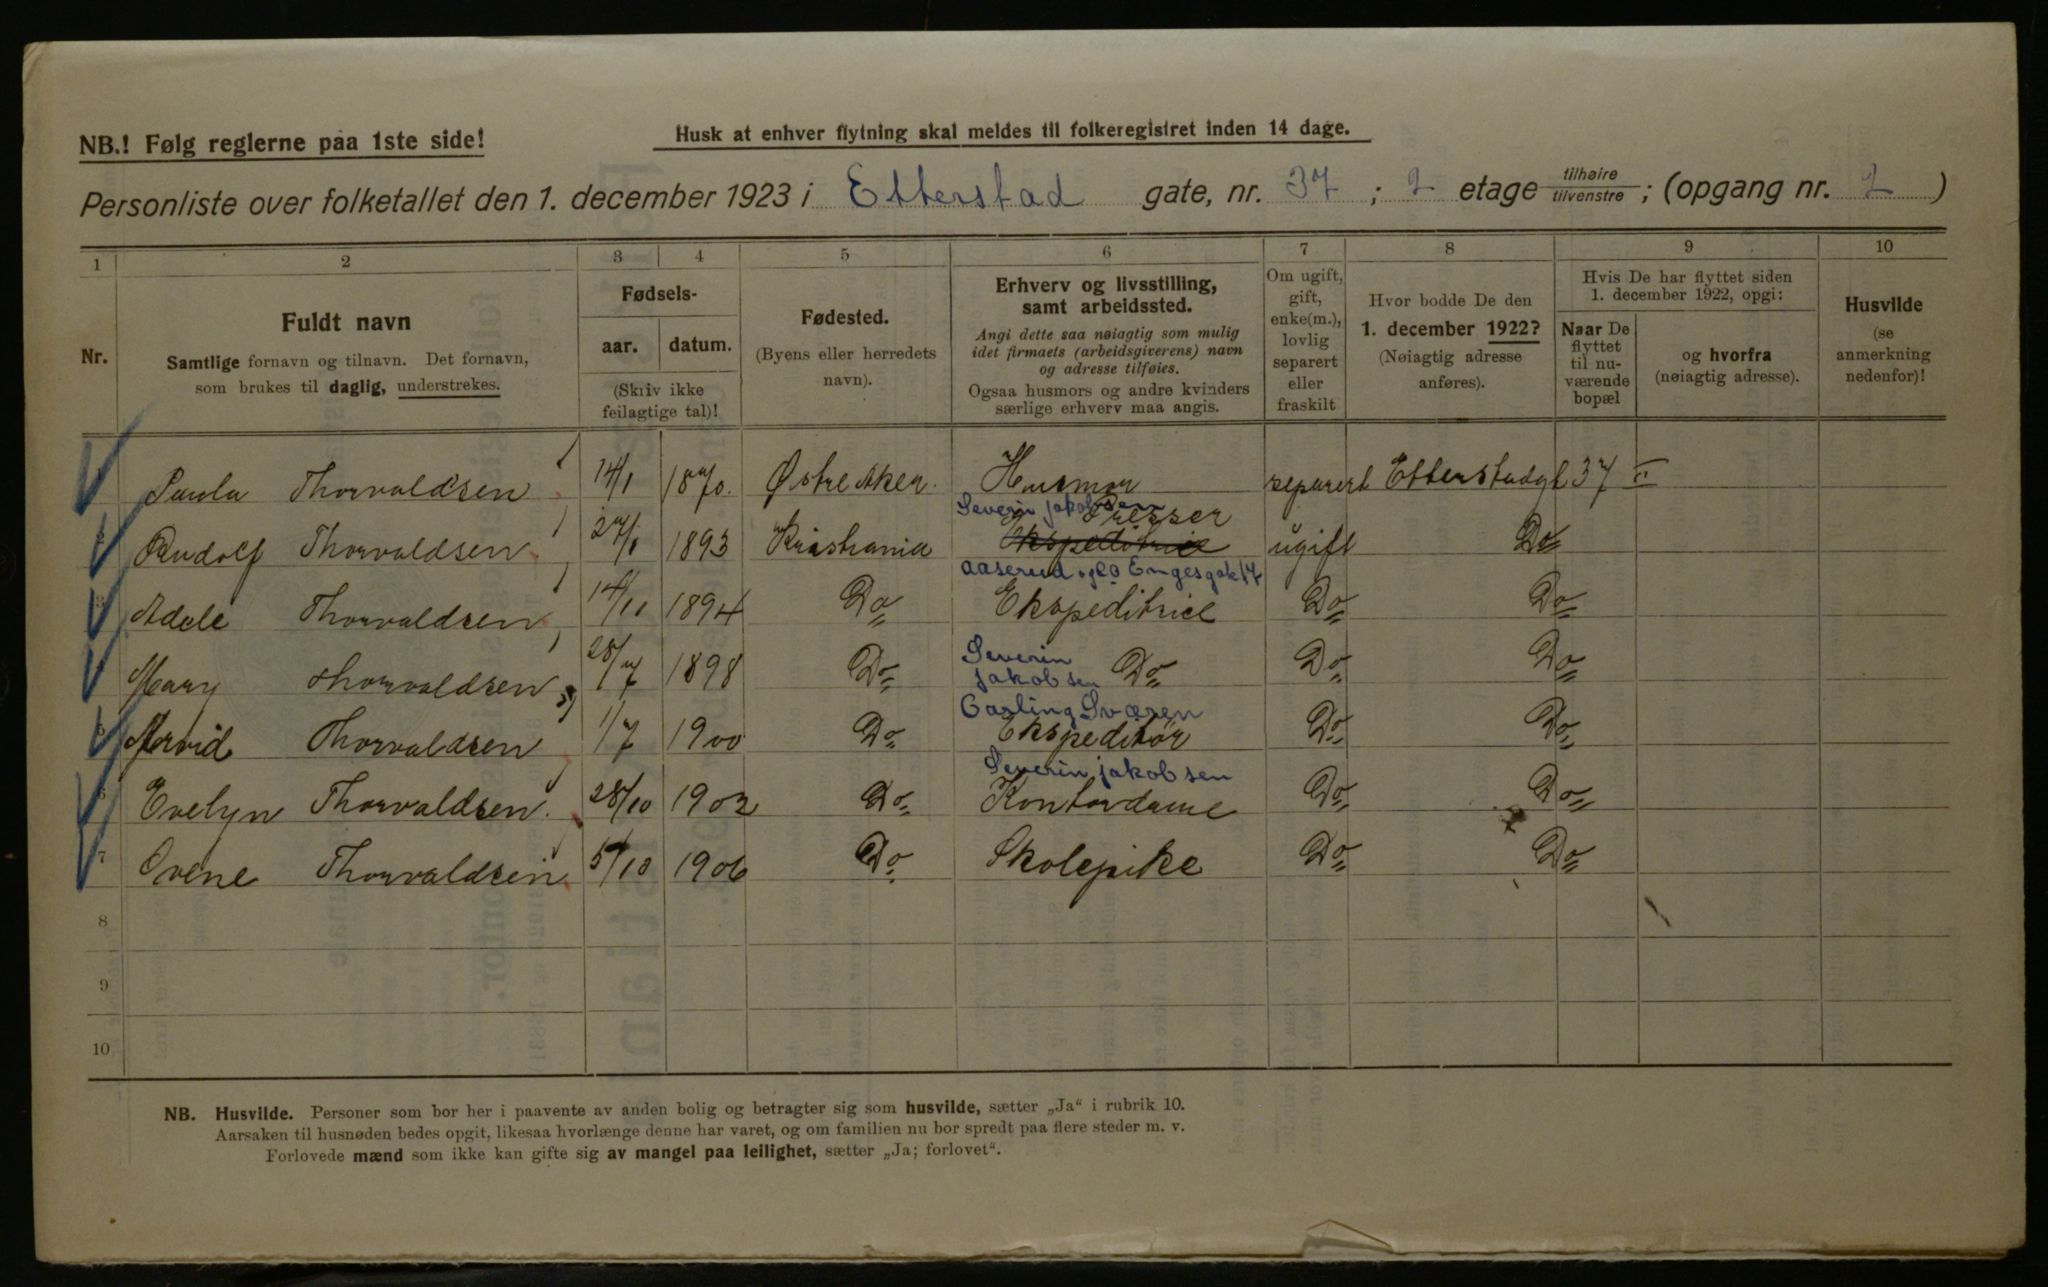 NB.! Følg reglerne paa 1ste side!
Husk at enhver flytning skal meldes til folkeregistret inden 14 dage.
Personliste over folketallet den 1. december 1923 i Etterstad gate, nr. 37 ; 2 etage tilhøire tilvenstre ; (opgang nr. 2 )
1 2 3 4 5 6 7 8 9 10
Nr.
Fuldt navn
Samtlige fornavn og tilnavn. Det fornavn,
som brukes til daglig, understrekes.
Fødsels-
aar. datum.
(Skriv ikke
feilagtige tal)!
Fødested.
(Byens eller herredets
navn).
Erhverv og livsstilling,
samt arbeidssted.
Angi dette saa nøiagtig som mulig
idet firmaets (arbeidsgiverens) navn
og adresse tilføies.
Ogsaa husmors og andre kvinders
særlige erhverv maa angis.
Om ugift,
gift,
enke(m.),
lovlig
separert
eller
fraskilt
Hvor bodde De den
1. december 1922?
(Nøiagtig adresse
anføres).
Hvis De har flyttet siden
1. december 1922, opgi:
Naar De
flyttet
til nu-
værende
bopæl
og hvorfra
(nøiagtig adresse).
Husvilde
(se
anmerkning
nedenfor)!
Paula Thorvaldsen 14/1 1870. Østre Aker. Husmor separert Etterstadgt 37 II
Severin jakobsen Presser
2 Rudolf Thorvaldsen 27/1 1893 Kristiania Ekspeditrice ugift Do
Aaserud Engesgate 14
3 Adele Thorvaldsen 14/11 1894 Do Ekspeditrice Do Do
Severin
4 Mary Thorvaldsen 28/7 1898 Do jakobsen Do Do Do
Carling Svæsen
5 Arvid Thorvaldsen 1/7 1900 Do Ekspeditør Do Do
Severin jakobsen
6 Evelyn Thorvaldsen. 28/10 1902 Do Kontordame Do Do
7 Ovene Thorvaldsen 5/10 1906 Do Skolepike Do Do
8
9
10
NB. Husvilde. Personer som bor her i paavente av anden bolig og betragter sig som husvilde, sætter „Ja“ i rubrik 10.
Aarsaken til husnøden bedes opgit, likesaa hvorlænge denne har varet, og om familien nu bor spredt paa flere steder m. v.
Forlovede mænd som ikke kan gifte sig av mangel paa leilighet, sætter „Ja; forlovet“.